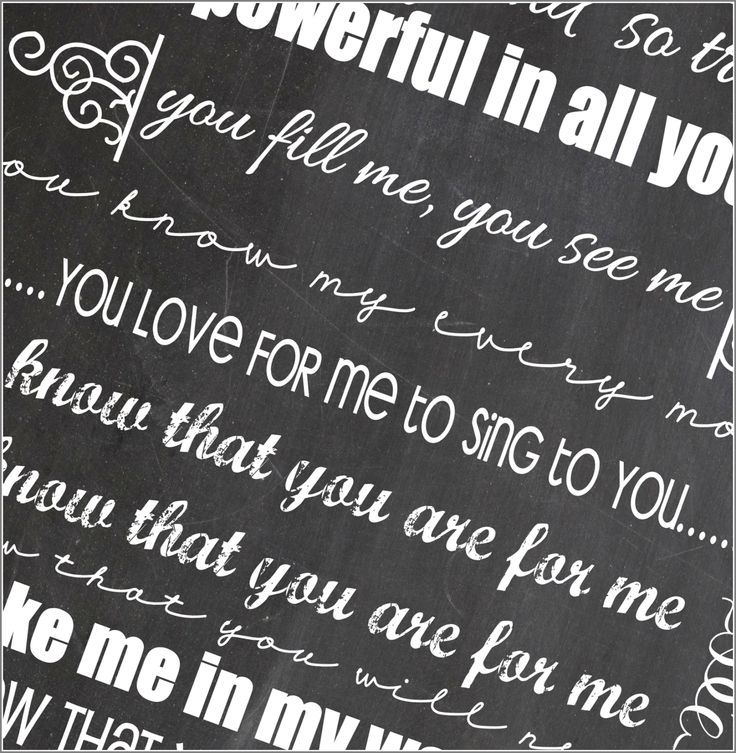 so
powerful in all
you fill me, you see me
know my every
..... YOU LOVE FOR Me TO SING TO YOU.....
know that you are for me
know that you are for me
that you will
me in my
THAT